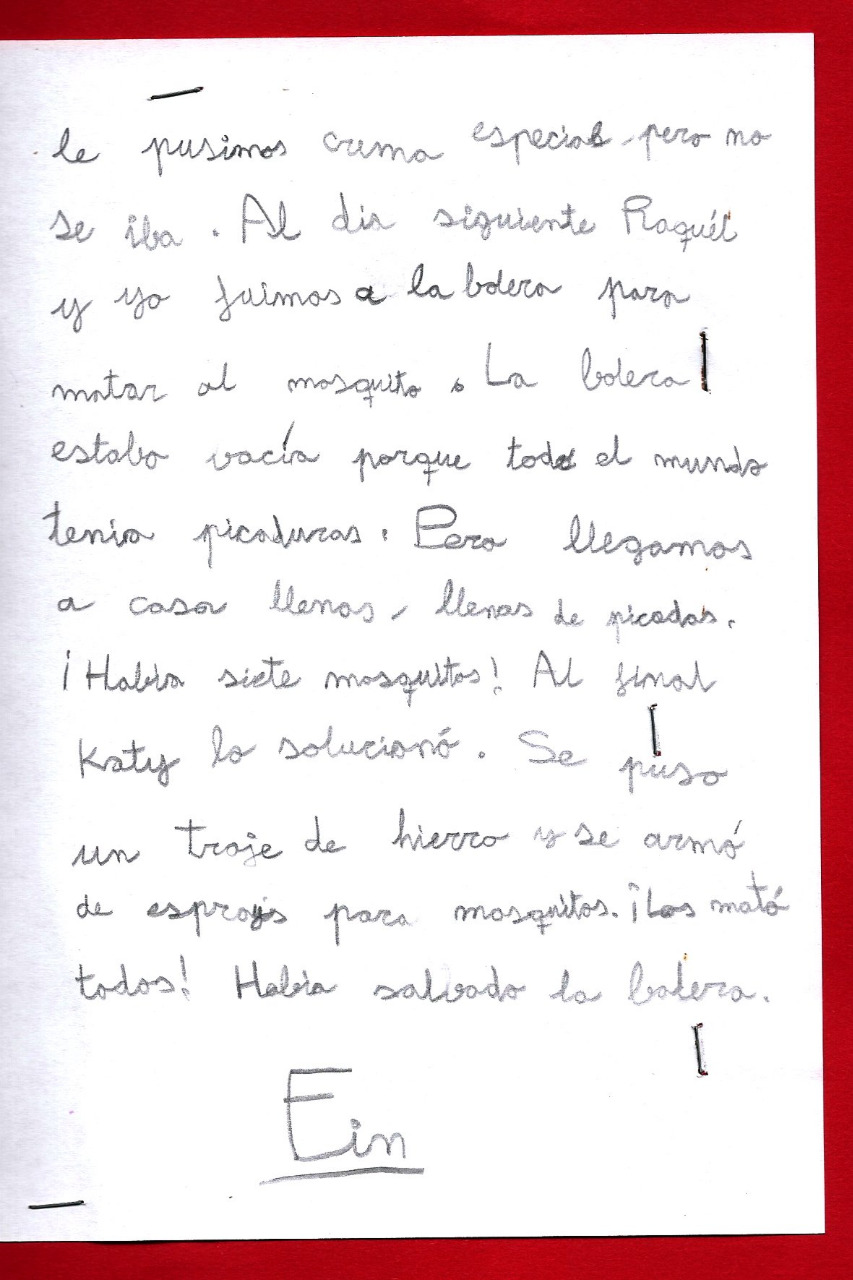 le pusimos crema especial pero no
se iba. Al dia siguiente Raquél
y yo fuimos a la bolera para
matar al mosquito. La bolera
estaba vacía porque todo el mundo
tenia picaduras. Pero llegamos
a casa llenas, llenas de picadas.
¡Habia siete mosquitos! Al final
Katy lo solucionó. Se puso
un traje de hierro y se armó
de esprays para mosquitos. ¡Los mató
todos! Habia salbado la bolera.
Fin